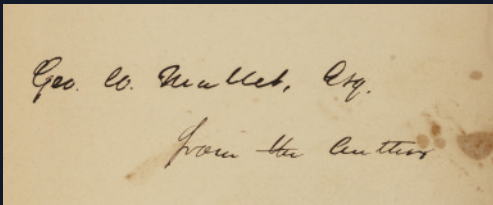 Geo. Co. Mallet, Esq.
from the Author